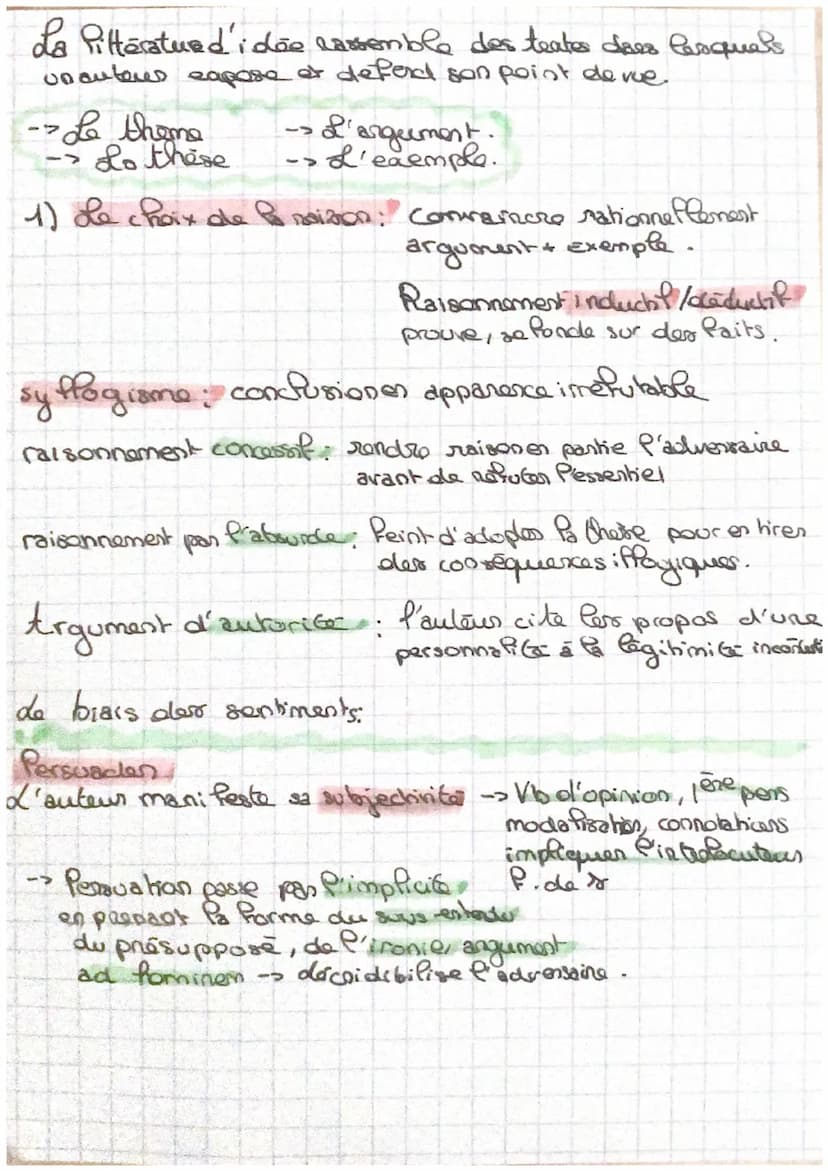 La littérature d'idée rassemble des textes dans lesquels
un auteur expose et défend son point de vue.
-> Le thème -> L'argument.
-> La thèse -> L'exemple.
1) Le choix de la raison : Convaincre rationnellement
argument + Exemple.
Raisonnement inductif/déductif
prouve, se fonde sur des faits.
syllogisme : conclusion en apparence irréfutable
raisonnement concessif : rendre raison en partie l'adversaire
avant de réfuter l'essentiel
raisonnement par l'absurde : Feint d'adopter la thèse pour en tirer
des conséquences illogiques.
Argument d'autorité : l'auteur cite les propos d'une
personnalité à la légitimité incontest
de biais des sentiments :
Persuader
L'auteur manifeste sa subjectivité -> Vb d'opinion, 1ère pers
modalisation, connotations
impliquer l'interlocuteur
-> Persuation passe par l'implicite F. de
en prenant la forme du sous-entendu
du présupposé, de l'ironie, argument
ad hominem -> décridibilise l'adversaire.